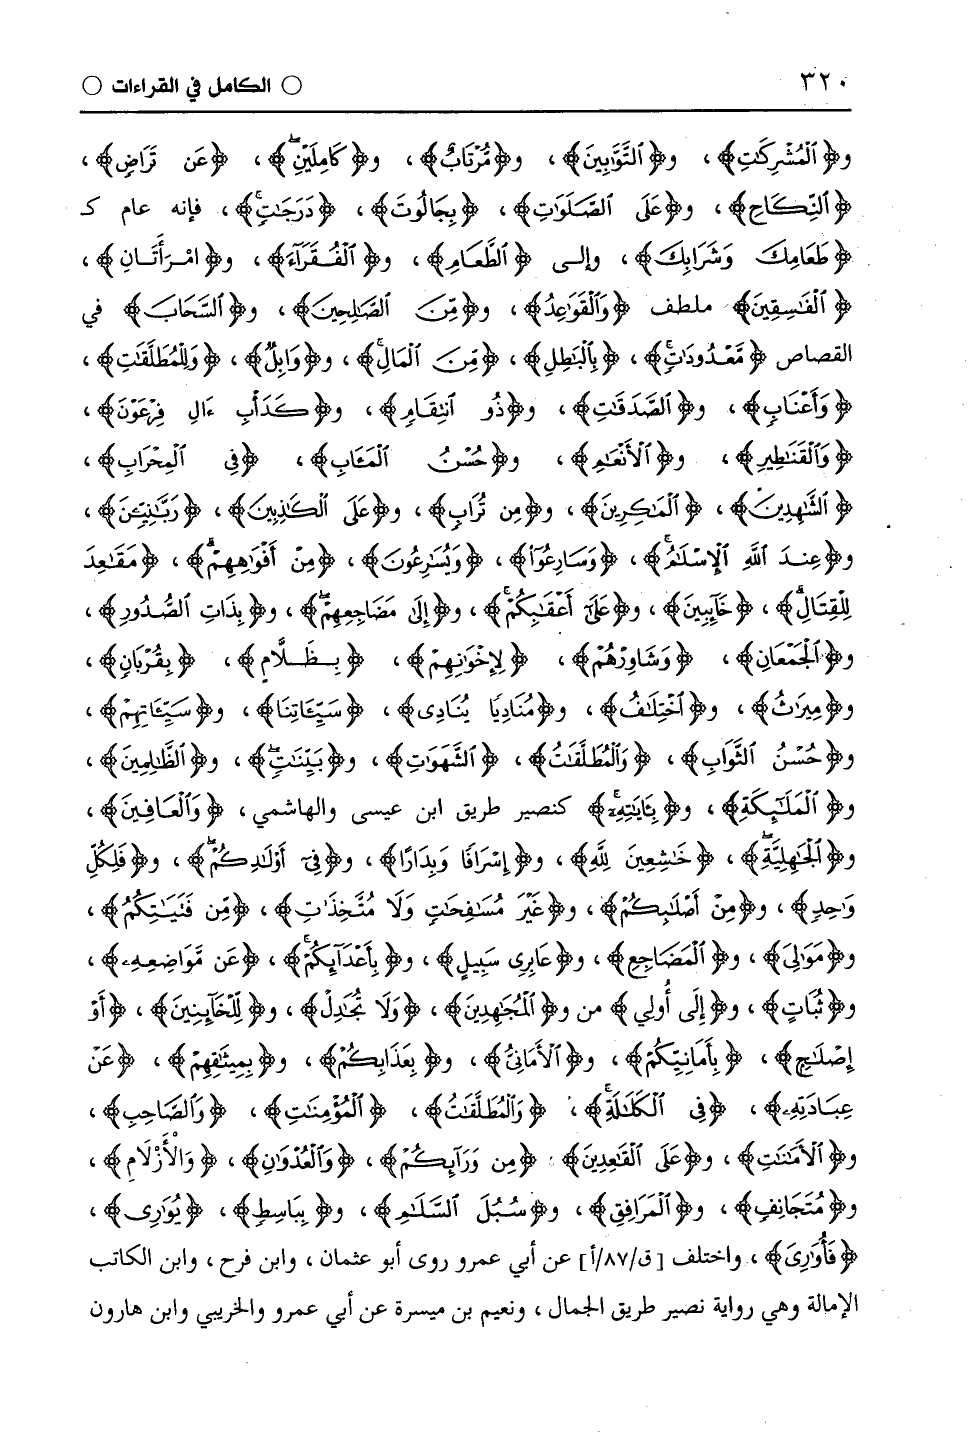 ٣٢٠ ○ الكامل في القراءات ○
و﴿ٱلْمُشْرِكَٰتِ﴾، و﴿ٱلتَّوَّٰبِينَ﴾، و﴿مُرْتَابٌ﴾، و﴿كَامِلَيْنِۖ﴾، ﴿عَن تَرَاضٍ﴾،
﴿ٱلنِّكَاحِ﴾، و﴿عَلَى ٱلصَّلَوَٰتِ﴾، ﴿بِجَالُوتَ﴾، ﴿دَرَجَٰتٍۚ﴾، فإنه عام كـ
﴿طَعَامِكَ وَشَرَابِكَ﴾، وإلى ﴿ٱلطَّعَامِ﴾، و﴿ٱلْفُقَرَآءَ﴾، و﴿امْرَأَتَانِ﴾،
﴿ٱلْفَٰسِقِينَ﴾ ملطف ﴿وَٱلْقَوَٰعِدُ﴾، و﴿مِّنَ ٱلصَّٰلِحِينَ﴾، و﴿ٱلسَّحَابَ﴾ في
القصاص ﴿مَّعْدُودَٰتٍۚ﴾، ﴿بِٱلْبَٰطِلِ﴾، ﴿مِّنَ ٱلْمَالِۚ﴾، و﴿وَابِلٌ﴾، ﴿وَلِلْمُطَلَّقَٰتِ﴾،
﴿وَأَعْنَابٍ﴾، و﴿ٱلصَّدَقَٰتِ﴾، و﴿ذُو ٱنتِقَامٍ﴾، و﴿كَدَأْبِ ءَالِ فِرْعَوْنَ﴾،
﴿وَٱلْقَنَٰطِيرِ﴾، و﴿ٱلْأَنْعَٰمِ﴾، و﴿حُسْنُ ٱلْمَـَٔابِ﴾، ﴿فِي ٱلْمِحْرَابِ﴾،
﴿ٱلشَّٰهِدِينَ﴾، ﴿ٱلْمَٰكِرِينَ﴾، و﴿مِن تُرَابٍ﴾، و﴿عَلَى ٱلْكَٰذِبِينَ﴾، ﴿رَبَّٰنِيِّـۧنَ﴾،
و﴿عِندَ ٱللَّهِ ٱلْإِسْلَٰمُۗ﴾، ﴿وَسَارِعُوٓا۟﴾، ﴿وَيُسَٰرِعُونَ﴾، ﴿مِنْ أَفْوَٰهِهِمْ﴾، ﴿مَقَٰعِدَ
لِلْقِتَالِۗ﴾، ﴿خَآئِبِينَ﴾، و﴿عَلَىٰٓ أَعْقَٰبِكُمْۚ﴾، و﴿إِلَىٰ مَضَاجِعِهِمْۖ﴾، و﴿بِذَاتِ ٱلصُّدُورِ﴾،
و﴿ٱلْجَمْعَانِ﴾، ﴿وَشَاوِرْهُمْ﴾، ﴿لِإِخْوَٰنِهِمْ﴾، ﴿بِظَلَّامٍ﴾، ﴿بِقُرْبَانٍ﴾،
و﴿مِيرَٰثُ﴾، و﴿ٱخْتِلَٰفُ﴾، و﴿مُنَادِيًا يُنَادِى﴾، ﴿سَيِّـَٔاتِنَا﴾، و﴿سَيِّـَٔاتِهِمْ﴾،
و﴿حُسْنُ ٱلثَّوَابِ﴾، ﴿وَٱلْمُطَلَّقَٰتُ﴾، ﴿ٱلشَّهَوَٰتِ﴾، و﴿بَيِّنَٰتٍۖ﴾، و﴿ٱلظَّٰلِمِينَ﴾،
و﴿ٱلْمَلَٰٓئِكَةِ﴾، و﴿بِـَٔايَٰتِهِۦٓۚ﴾ كنصير طريق ابن عيسى والهاشمي، ﴿وَٱلْعَافِينَ﴾،
و﴿ٱلْجَٰهِلِيَّةِۖ﴾، ﴿خَٰشِعِينَ لِلَّهِ﴾، و﴿إِسْرَافًا وَبِدَارًا﴾، و﴿فِىٓ أَوْلَٰدِكُمْۖ﴾، و﴿فَلِكُلِّ
وَٰحِدٍ﴾، و﴿مِنْ أَصْلَٰبِكُمْ﴾، و﴿غَيْرَ مُسَٰفِحَٰتٍ وَلَا مُتَّخِذَٰتِ﴾، ﴿مِّن فَتَيَٰتِكُمُ﴾،
و﴿مَوَٰلِىَ﴾، و﴿ٱلْمَضَاجِعِ﴾، و﴿عَابِرِى سَبِيلٍ﴾، و﴿بِأَعْدَآئِكُمْۚ﴾، ﴿عَن مَّوَاضِعِهِۦ﴾،
و﴿ثُبَاتٍ﴾، و﴿إِلَى أُولي﴾ من و﴿ٱلْمُجَٰهِدِينَ﴾، ﴿وَلَا تُجَٰدِلْ﴾، و﴿لِّلْخَآئِنِينَ﴾، ﴿أَوْ
إِصْلَٰحٍ﴾، ﴿بِأَمَانِيِّكُمْ﴾، و﴿ٱلْأَمَانِيُّ﴾، و﴿بِعَذَابِكُمْ﴾، و﴿بِمِيثَٰقِهِمْ﴾، ﴿عَنْ
عِبَادَتِهِۦ﴾، ﴿فِى ٱلْكَلَٰلَةِۚ﴾، ﴿وَٱلْمُطَلَّقَٰتُ﴾، ﴿ٱلْمُؤْمِنَٰتِ﴾، ﴿وَٱلصَّاحِبِ﴾،
و﴿ٱلْأَمَٰنَٰتِ﴾، و﴿عَلَى ٱلْقَٰعِدِينَ﴾، ﴿مِن وَرَآئِكُمْ﴾، ﴿وَٱلْعُدْوَٰنِ﴾، ﴿وَالْأَزْلَامِ﴾،
و﴿مُتَجَانِفٍ﴾، و﴿ٱلْمَرَافِقِ﴾، و﴿سُبُلَ ٱلسَّلَٰمِ﴾، و﴿بِبَاسِطٍ﴾، ﴿يُوَٰرِى﴾،
﴿فَأُوَٰرِىَ﴾، واختلف [ق/٨٧/أ] عن أبي عمرو روى أبو عثمان، وابن فرح، وابن الكاتب
الإمالة وهي رواية نصير طريق الجمال، ونعيم بن ميسرة عن أبي عمرو والخريبي وابن هارون